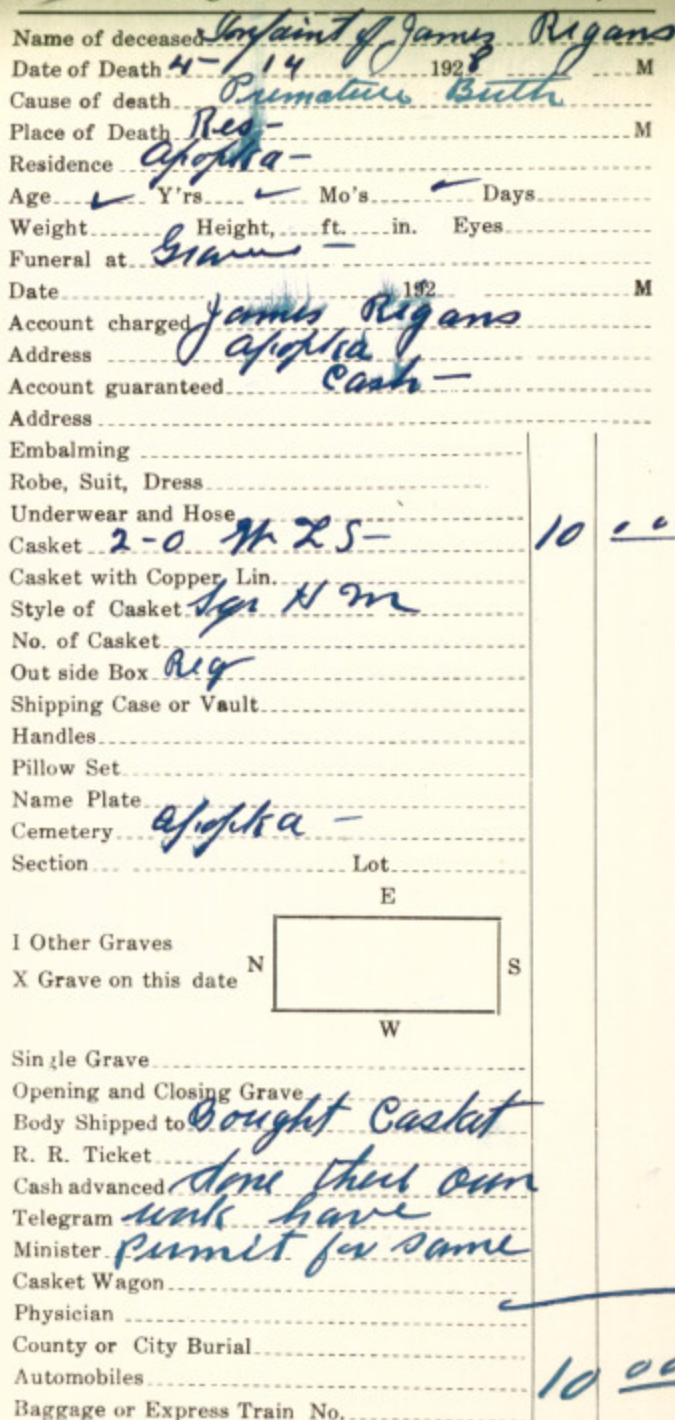 Name of deceased Infaint of James Regans
Date of Death 4-14 1928 M
Cause of death Premature Birth
Place of Death Res- M
Residence Apopka-
Age ✓ Y'rs ✓ Mo's ✓ Days
Weight Height, ft. in. Eyes
Funeral at Grave -
Date 192 M
Account charged James Regans
Address Apopka
Account guaranteed Cash -
Address
Embalming
Robe, Suit, Dress
Underwear and Hose
Casket 2-0 L S- 10 00
Casket with Copper Lin.
Style of Casket Sqr H M
No. of Casket
Out side Box Reg
Shipping Case or Vault
Handles
Pillow Set
Name Plate
Cemetery Apopka -
Section Lot
E
I Other Graves
N S
X Grave on this date
W
Single Grave
Opening and Closing Grave
Body Shipped to Bought Caskat
R. R. Ticket
Cash advanced done their own
Telegram work have
Minister Permit for same
Casket Wagon
Physician
County or City Burial
Automobiles 10 00
Baggage or Express Train No.